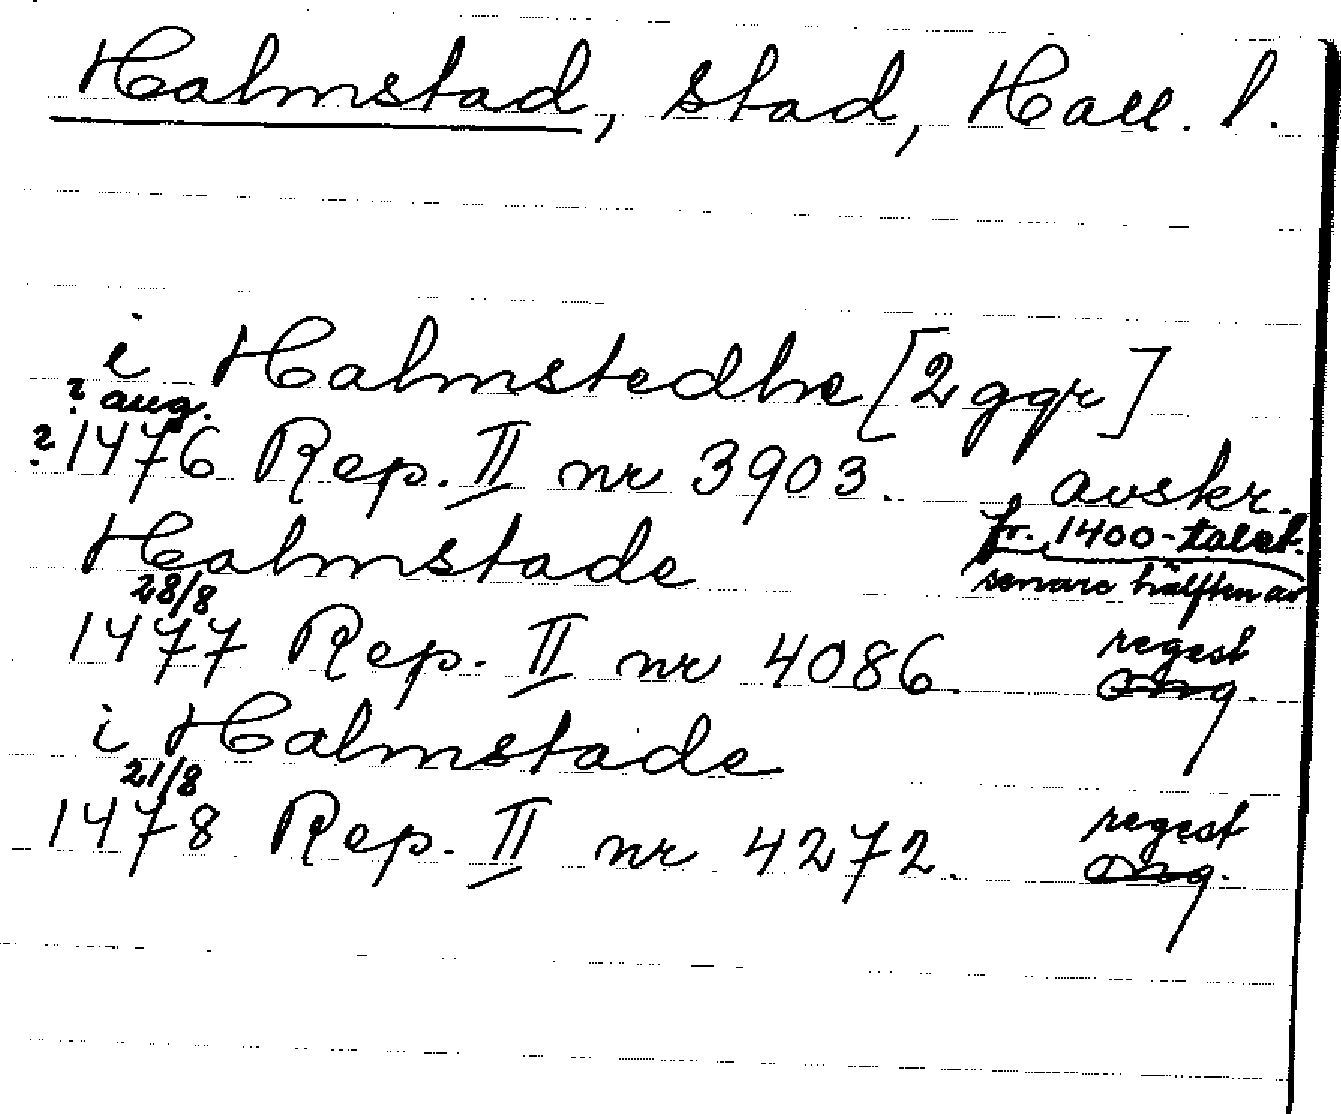 Halmstad, stad, Hall. l.
i Halmstedhe [2 ggr]
? aug.
?1476 Rep. II nr 3903. avskr.
fr. 1400-talet.
senare hälften av
Halmstade
28/8
1477 Rep. II nr 4086. regest
orig.
i Halmstade
21/8
1478 Rep. II nr 4272. regest
orig.